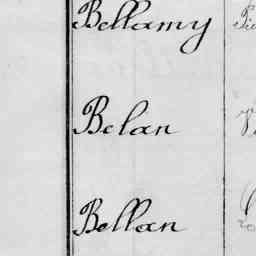 Bellamy
Belan
Bellan